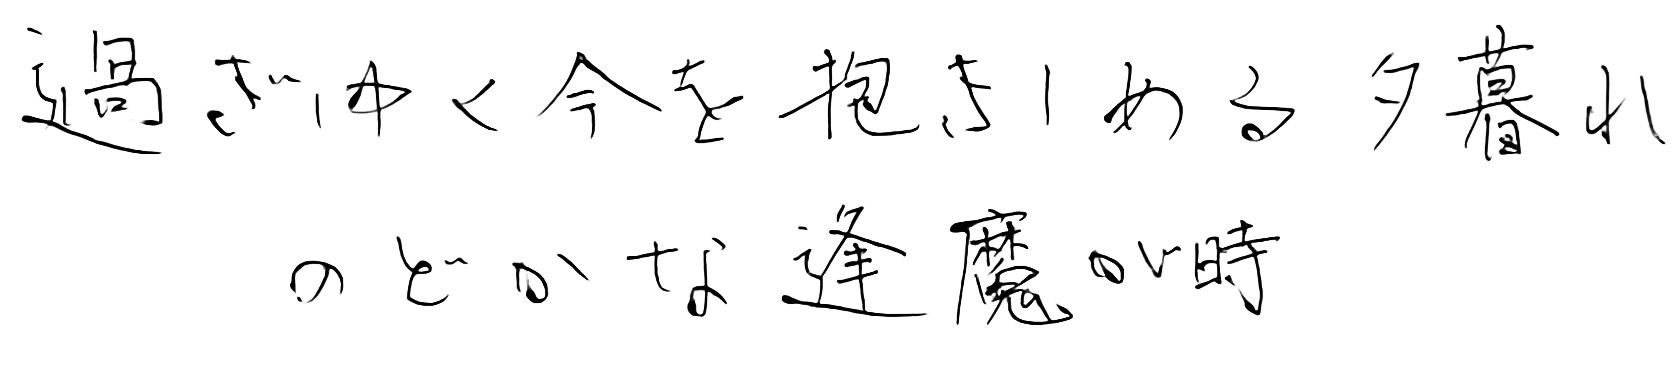 過ぎゆく今を抱きしめる夕暮れ
のどかな逢魔が時